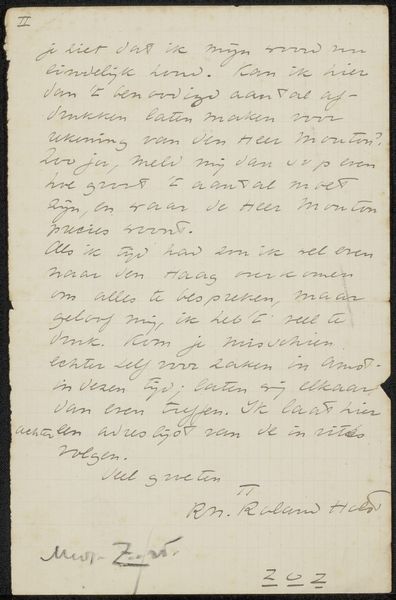 II
je ziet dat ik mijn woord nu
eindelijk houd. Kan ik hier
dan 't benoodigd aantal af-
drukken laten maken voor
rekening van den Heer Mouton?
Zoo ja, meld mij dan s.v.p even
hoe groot 't aantal moet
zijn, en waar de Heer Mouton
precies woont.
Als ik tijd had zou ik wel even
naar den Haag overkomen
om alles te bespreken, maar
geloof mij, ik heb 't veel te
druk. Kom je misschien
echter zelf voor zaken in Amst.
in dezen tijd; laten wij elkaar
dan even treffen. Ik laat hier
achter een adreslijst van de invités
volgen.
Veel groeten
TT
RN. Roland Holst
202